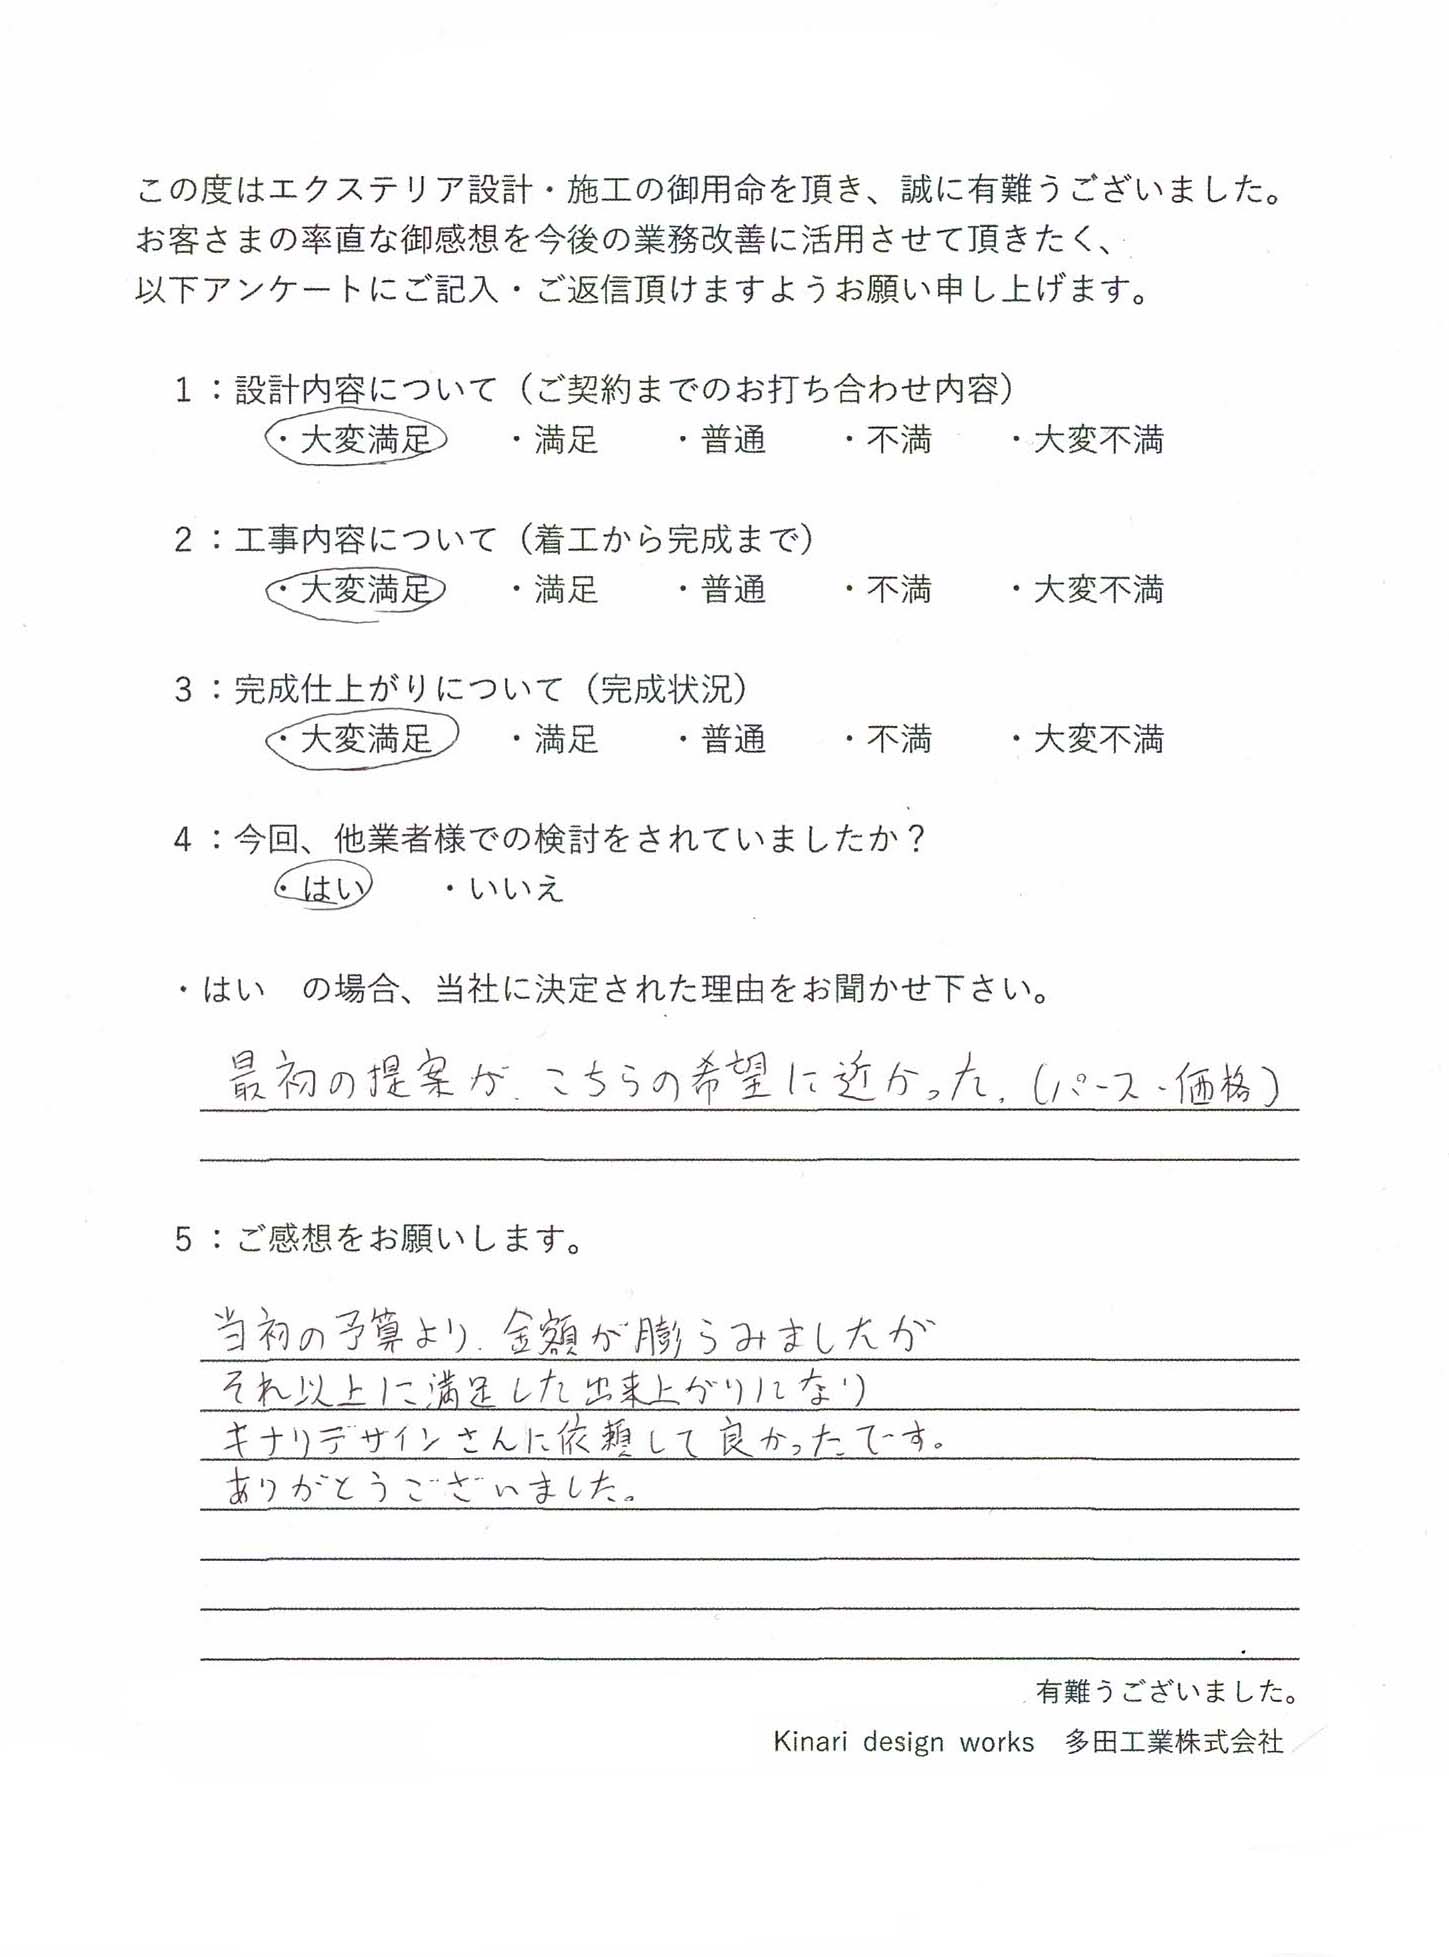 この度はエクステリア設計・施工の御用命を頂き、誠に有難うございました。
お客さまの率直な御感想を今後の業務改善に活用させて頂きたく、
以下アンケートにご記入・ご返信頂けますようお願い申し上げます。
1：設計内容について（ご契約までのお打ち合わせ内容）
・大変満足　・満足　・普通　・不満　・大変不満
2：工事内容について（着工から完成まで）
・大変満足　・満足　・普通　・不満　・大変不満
3：完成仕上がりについて（完成状況）
・大変満足　・満足　・普通　・不満　・大変不満
4：今回、他業者様での検討をされていましたか？
・はい　・いいえ
・はい　の場合、当社に決定された理由をお聞かせ下さい。
最初の提案が、こちらの希望に近かった。（パース・価格）
5：ご感想をお願いします。
当初の予算より、金額が膨らみましたが
それ以上に満足した出来上がりになり
キナリデザインさんに依頼して良かったです。
ありがとうございました。
有難うございました。
Kinari design works　多田工業株式会社